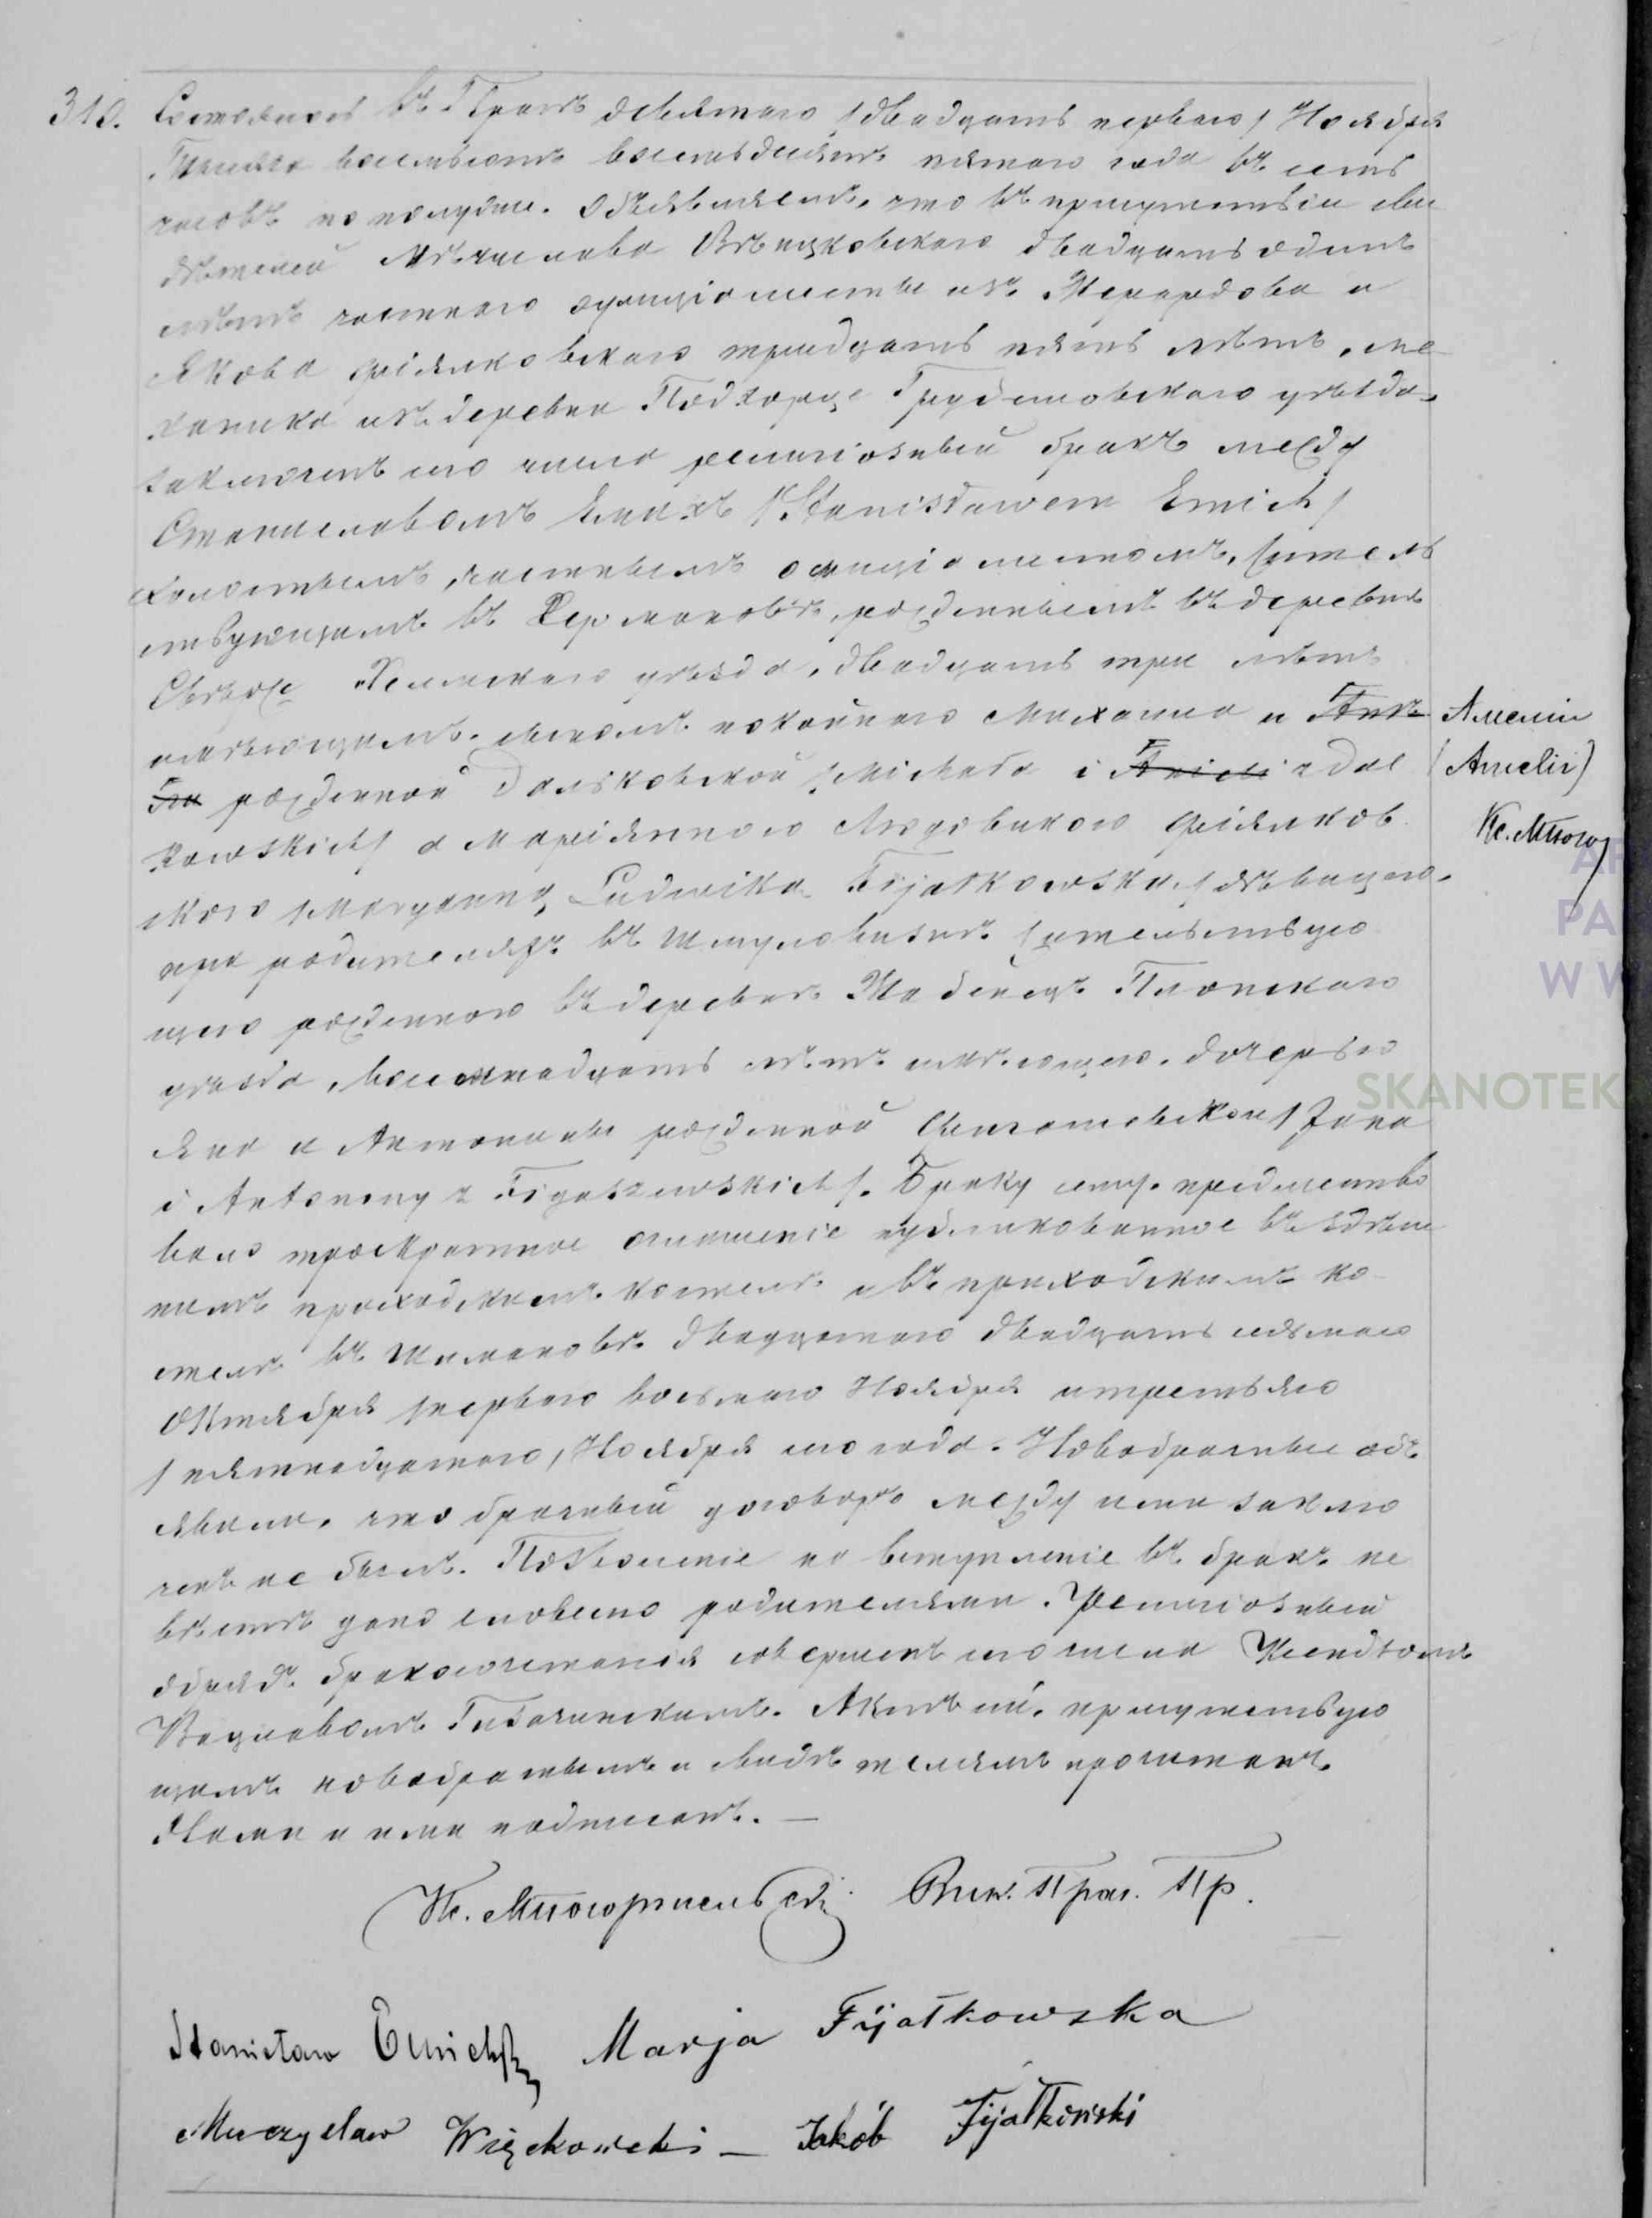 310. Состоялось въ Прагѣ девятаго /двадцать перваго/ Ноября
Тысяча восемьсотъ восемьдесятъ пятаго года въ семь
часовъ по полудни. Объявляемъ, что въ присутствіи сви
дѣтелей Мѣчислава Вѣнцковскаго двадцать одинъ
лѣтъ частнаго оффиціалисты изъ и
Якова Фіялковскаго тридцать пять лѣтъ, ме-
ханика изъ деревни Подхорце Грубешовскаго уѣзда,
заключенъ сего числа религіозный бракъ между
Станиславомъ Эмихъ /Stanisławem Emich/
холостымъ, частнымъ оффиціалистомъ, житель
ствующимъ въ рожденнымъ въ деревнѣ
Холмскаго уѣзда, двадцать три лѣтъ
имѣющимъ, сыномъ покойнаго Михаила и Амеліи
рожденной Дальковской /Michała i z Dal (Amelii)
kowskich/ а Маріянною Людовикою Фіялков- Кс. Много
скою /Maryanną Ludwiką Fijałkowską/ дѣвицею,
при родителяхъ въ жительствую
щею рожденною въ деревнѣ Плонскаго
уѣзда, восемнадцать лѣтъ имѣющею, дочерью
Яна и Антонины рожденной /Jana
i Antoniny z Браку сему предшество
вало троекратное оглашеніе публикованное въ здѣш
немъ приходскомъ костелѣ и въ приходскомъ ко-
стелѣ въ двадцать седьмаго
Октября /перваго восьмаго Ноября и третьяго
/пятнадцатаго/ Ноября сего года. Новобрачные объ
явили, что брачный договоръ между ними заклю
ченъ не былъ. Позволеніе на вступленіе въ бракъ не
вѣстѣ дано словесно родителями. Религіозный
обрядъ бракосочетанія совершенъ сего числа Ксендзомъ
Вацлавомъ Актъ сей, присутствую
щимъ новобрачнымъ и свидѣтелямъ прочитанъ,
Нами и ими подписанъ. —
Кс. Вик. Праг. Пр.
Stanisław Emich Marja Fijałkowska
Mieczysław Więckowski — Jakób Fijałkowski
SKANOTEK